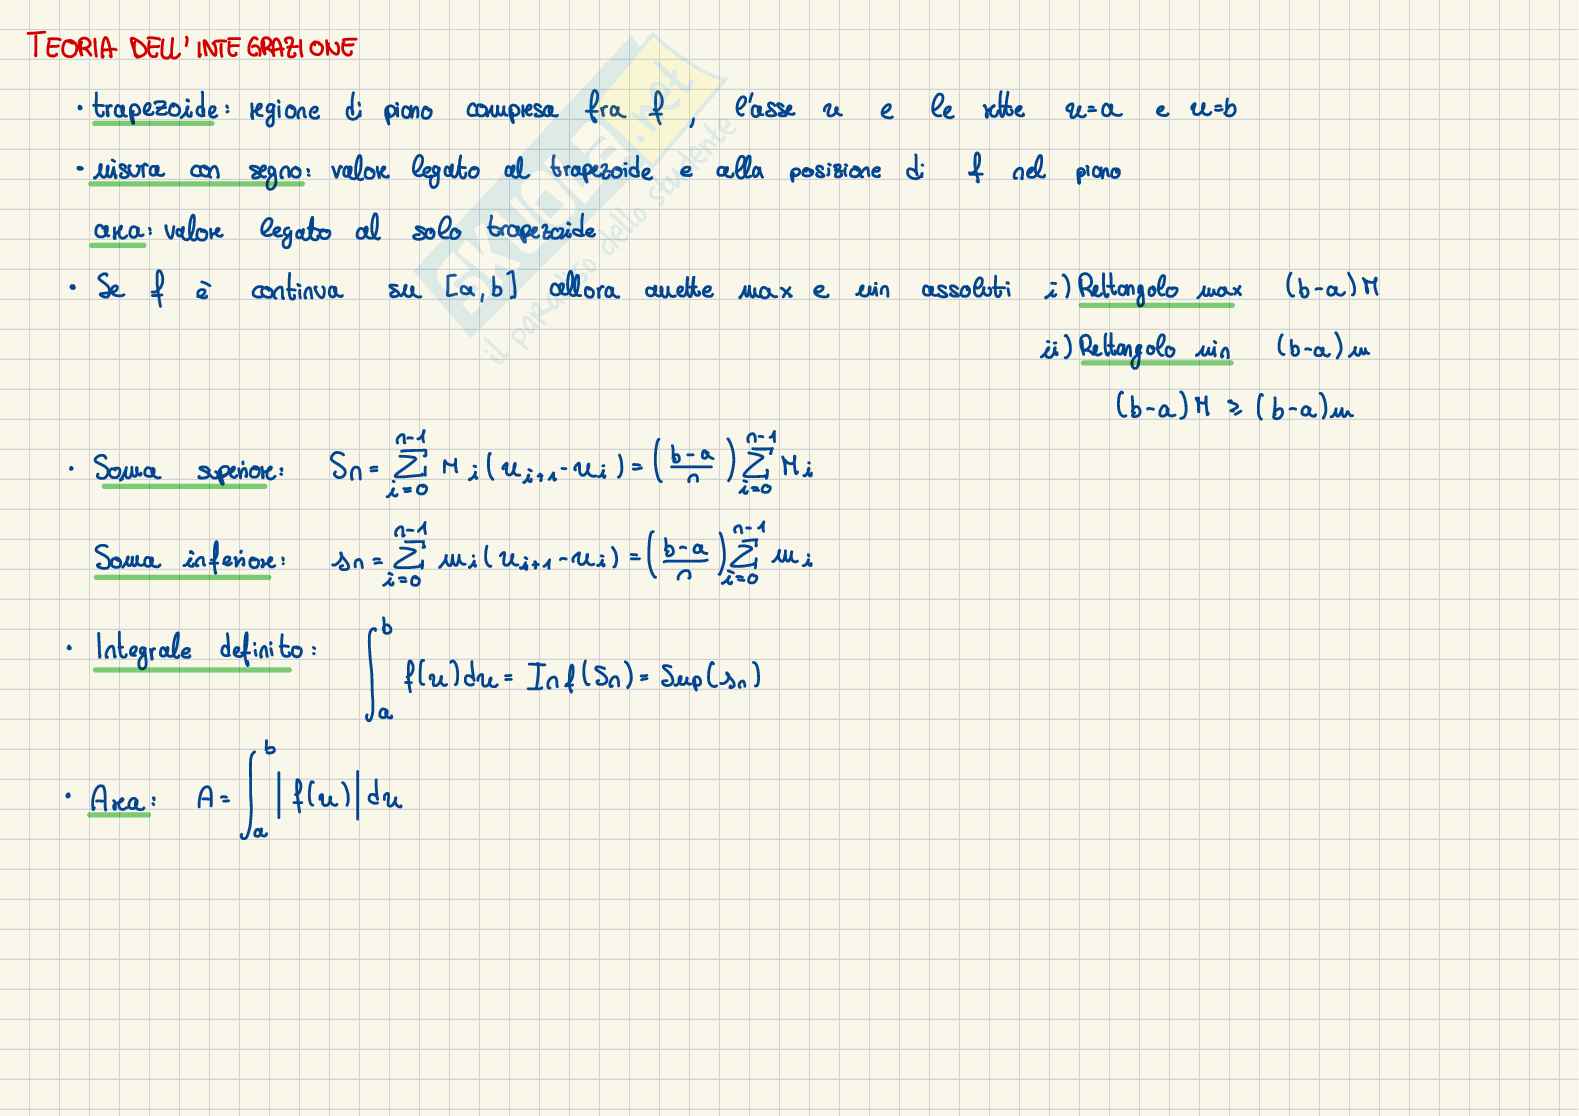 TEORIA DELL'INTEGRAZIONE
• trapezoide: regione di piano compresa fra f, l'asse x e le rette x=a e x=b
• misura con segno: valore legato al trapezoide e alla posizione di f nel piano
area: valore legato al solo trapezoide
• Se f è continua su [a,b] allora amette max e min assoluti i) Rettangolo max (b-a)M
ii) Rettangolo min (b-a)m
(b-a)M ≥ (b-a)m
• Somma superiore: Sn = ∑_{i=0}^{n-1} M_i (x_{i+1} - x_i) = ((b-a)/n) ∑_{i=0}^{n-1} M_i
Somma inferiore: sn = ∑_{i=0}^{n-1} m_i (x_{i+1} - x_i) = ((b-a)/n) ∑_{i=0}^{n-1} m_i
• Integrale definito: ∫_a^b f(x)dx = Inf(Sn) = Sup(sn)
• Area: A = ∫_a^b |f(x)| dx
SKUOLA.net
il paradiso dello studente